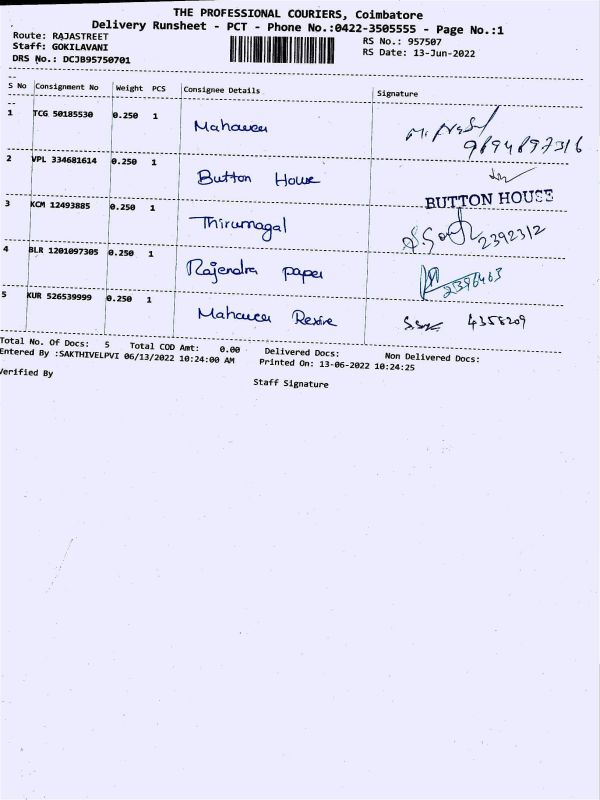 THE PROFESSIONAL COURIERS, Coimbatore
Delivery Runsheet - PCT - Phone No.:0422-3505555 - Page No.:1
Route: RAJASTREET
Staff: GOKILAVANI
DRS No.: DCJB95750701
RS No.: 957507
RS Date: 13-Jun-2022
S No Consignment No Weight PCS Consignee Details Signature
1 TCG 50185530 0.250 1
9894897316
2 VPL 334681614 0.250 1 Button House
BUTTON HOUSE
3 KCM 12493885 0.250 1 Thirumagal 2392312
4 BLR 1201097305 0.250 1 Rajendra paper 2396463
5 KUR 526539999 0.250 1 4358209
Total No. Of Docs: 5 Total COD Amt: 0.00 Delivered Docs: Non Delivered Docs:
Entered By :SAKTHIVELPVI 06/13/2022 10:24:00 AM Printed On: 13-06-2022 10:24:25
Verified By
Staff Signature